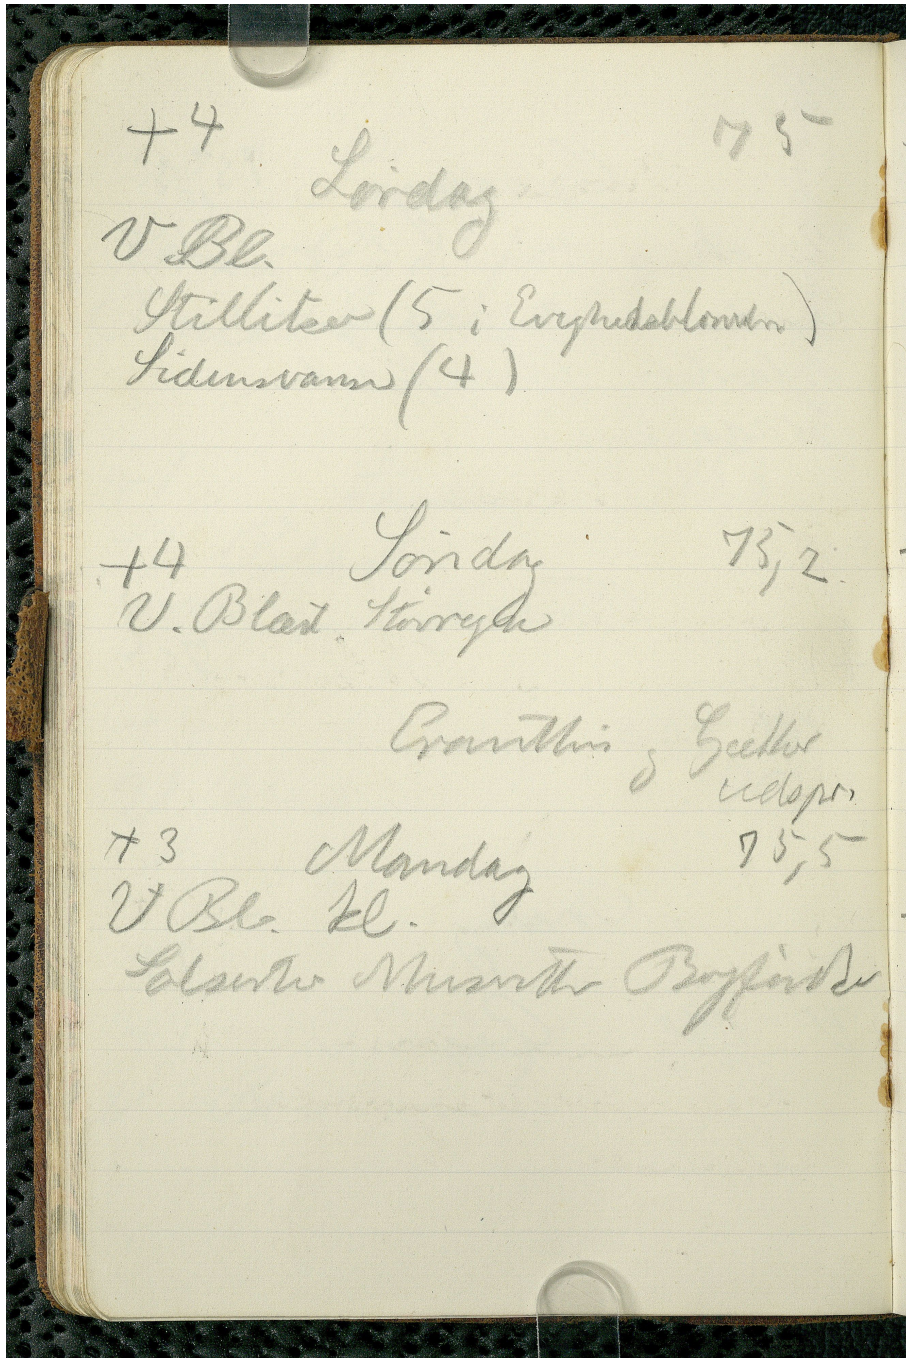 +4 75
Lørdag
V Bl.
Stillitser (5 i Evighedsblomster)
Sidensvanser (4)
+4 Søndag 75,2
V. Blæst. Størregn
Eranthis og Gækker
udspr.
+3 Mandag 75,5
V Bl. kl.
Solsorte Musvitter Bogfinke